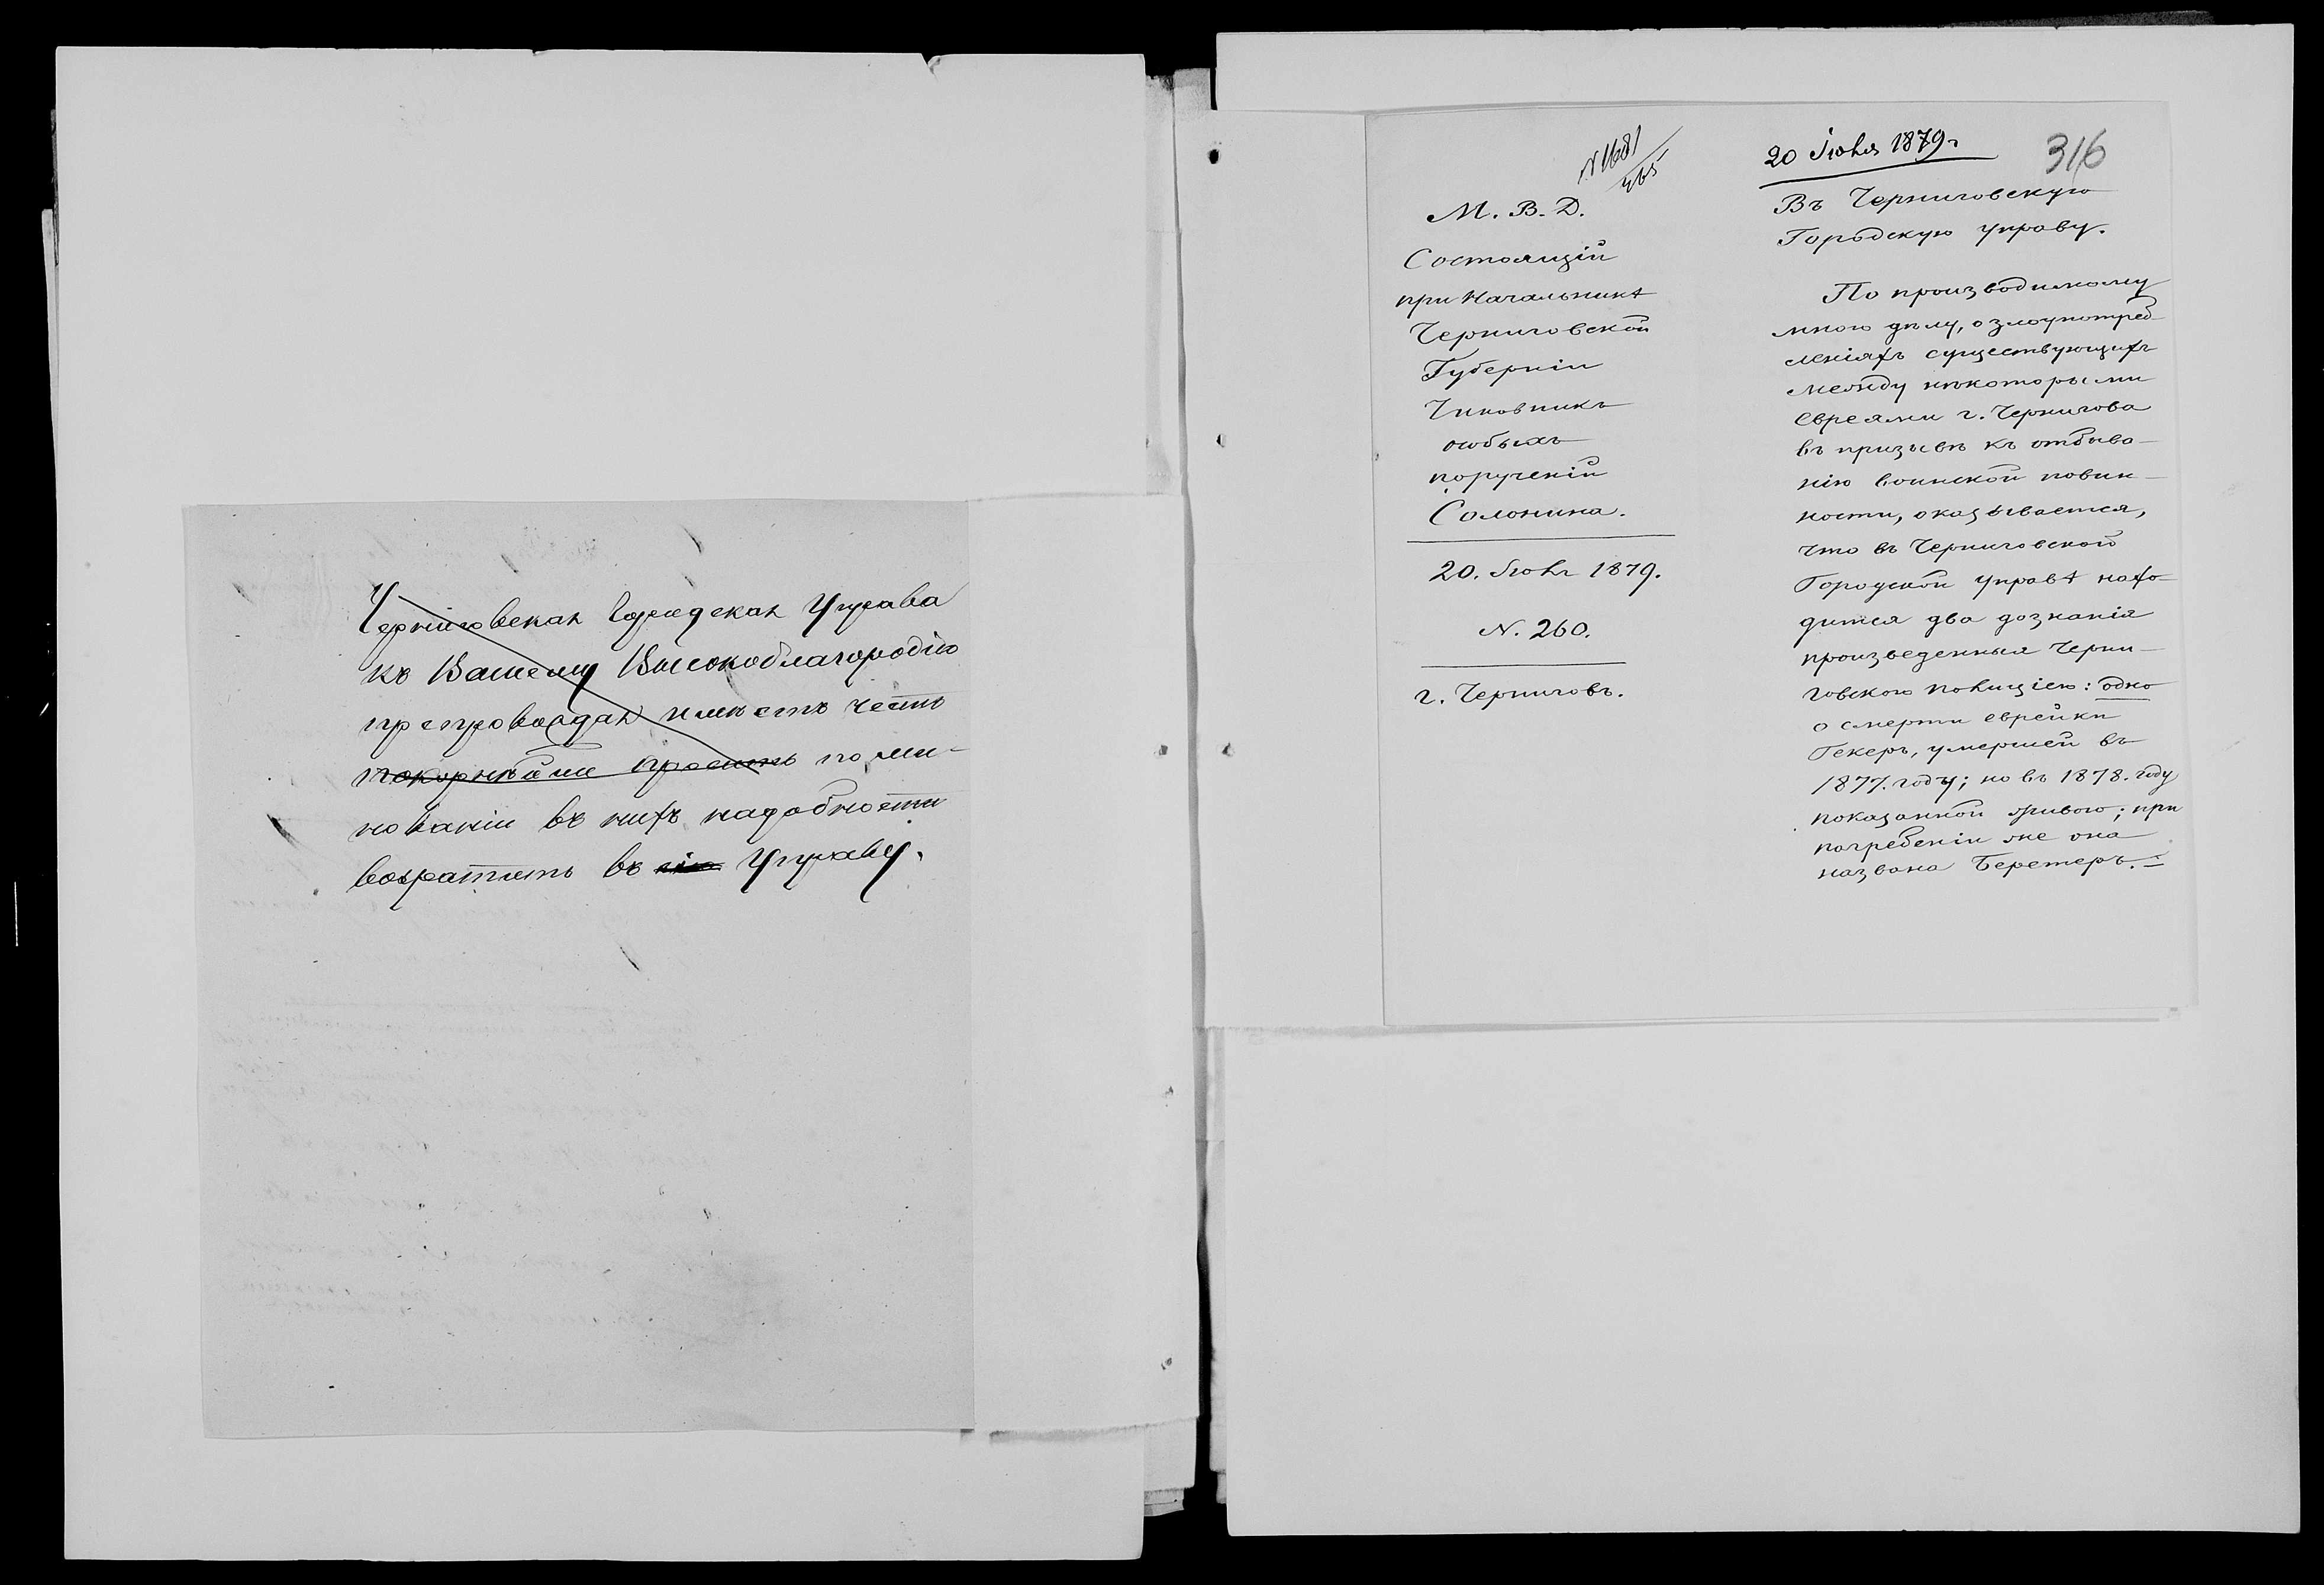 Черниговская Городская Управа
къ Вашему Высокоблагородію
препровождая имѣетъ честь
покорнѣйше просить по ми-
нованіи въ нихъ надобности
возратить въ сію Управу.
316
20 Іюня 1879 г
№ 1681
465
М. В. Д.
Состоящій
при Начальникѣ
Черниговской
Губерніи
Чиновникъ
особыхъ
порученій
Солонина.
20. Іюня 1879.
N. 260.
г. Черниговъ.
Въ Черниговскую
Городскую управу.
По производимому
мною дѣлу, о злоупотреб-
леніяхъ существующихъ
между нѣкоторыми
евреями г. Чернигова
въ призывѣ къ отбыва-
нію воинской повин-
ности, оказывается,
что въ Черниговской
Городской управѣ нахо-
дится два дознанія
произведенныя Черни-
говскою полиціею: одно
о смерти еврейки
Гекеръ, умершей въ
1877. году; но въ 1878. году
показанной живою; при
погребеніи же она
названа Беретеръ. =